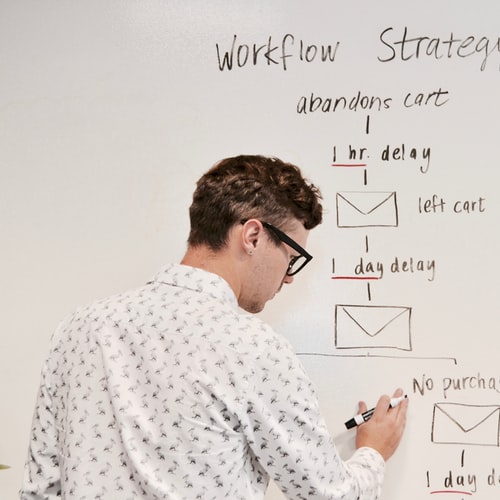 Workflow Strategy
abandons cart
1 hr. delay
left cart
1 day delay
No purchas
1 day d